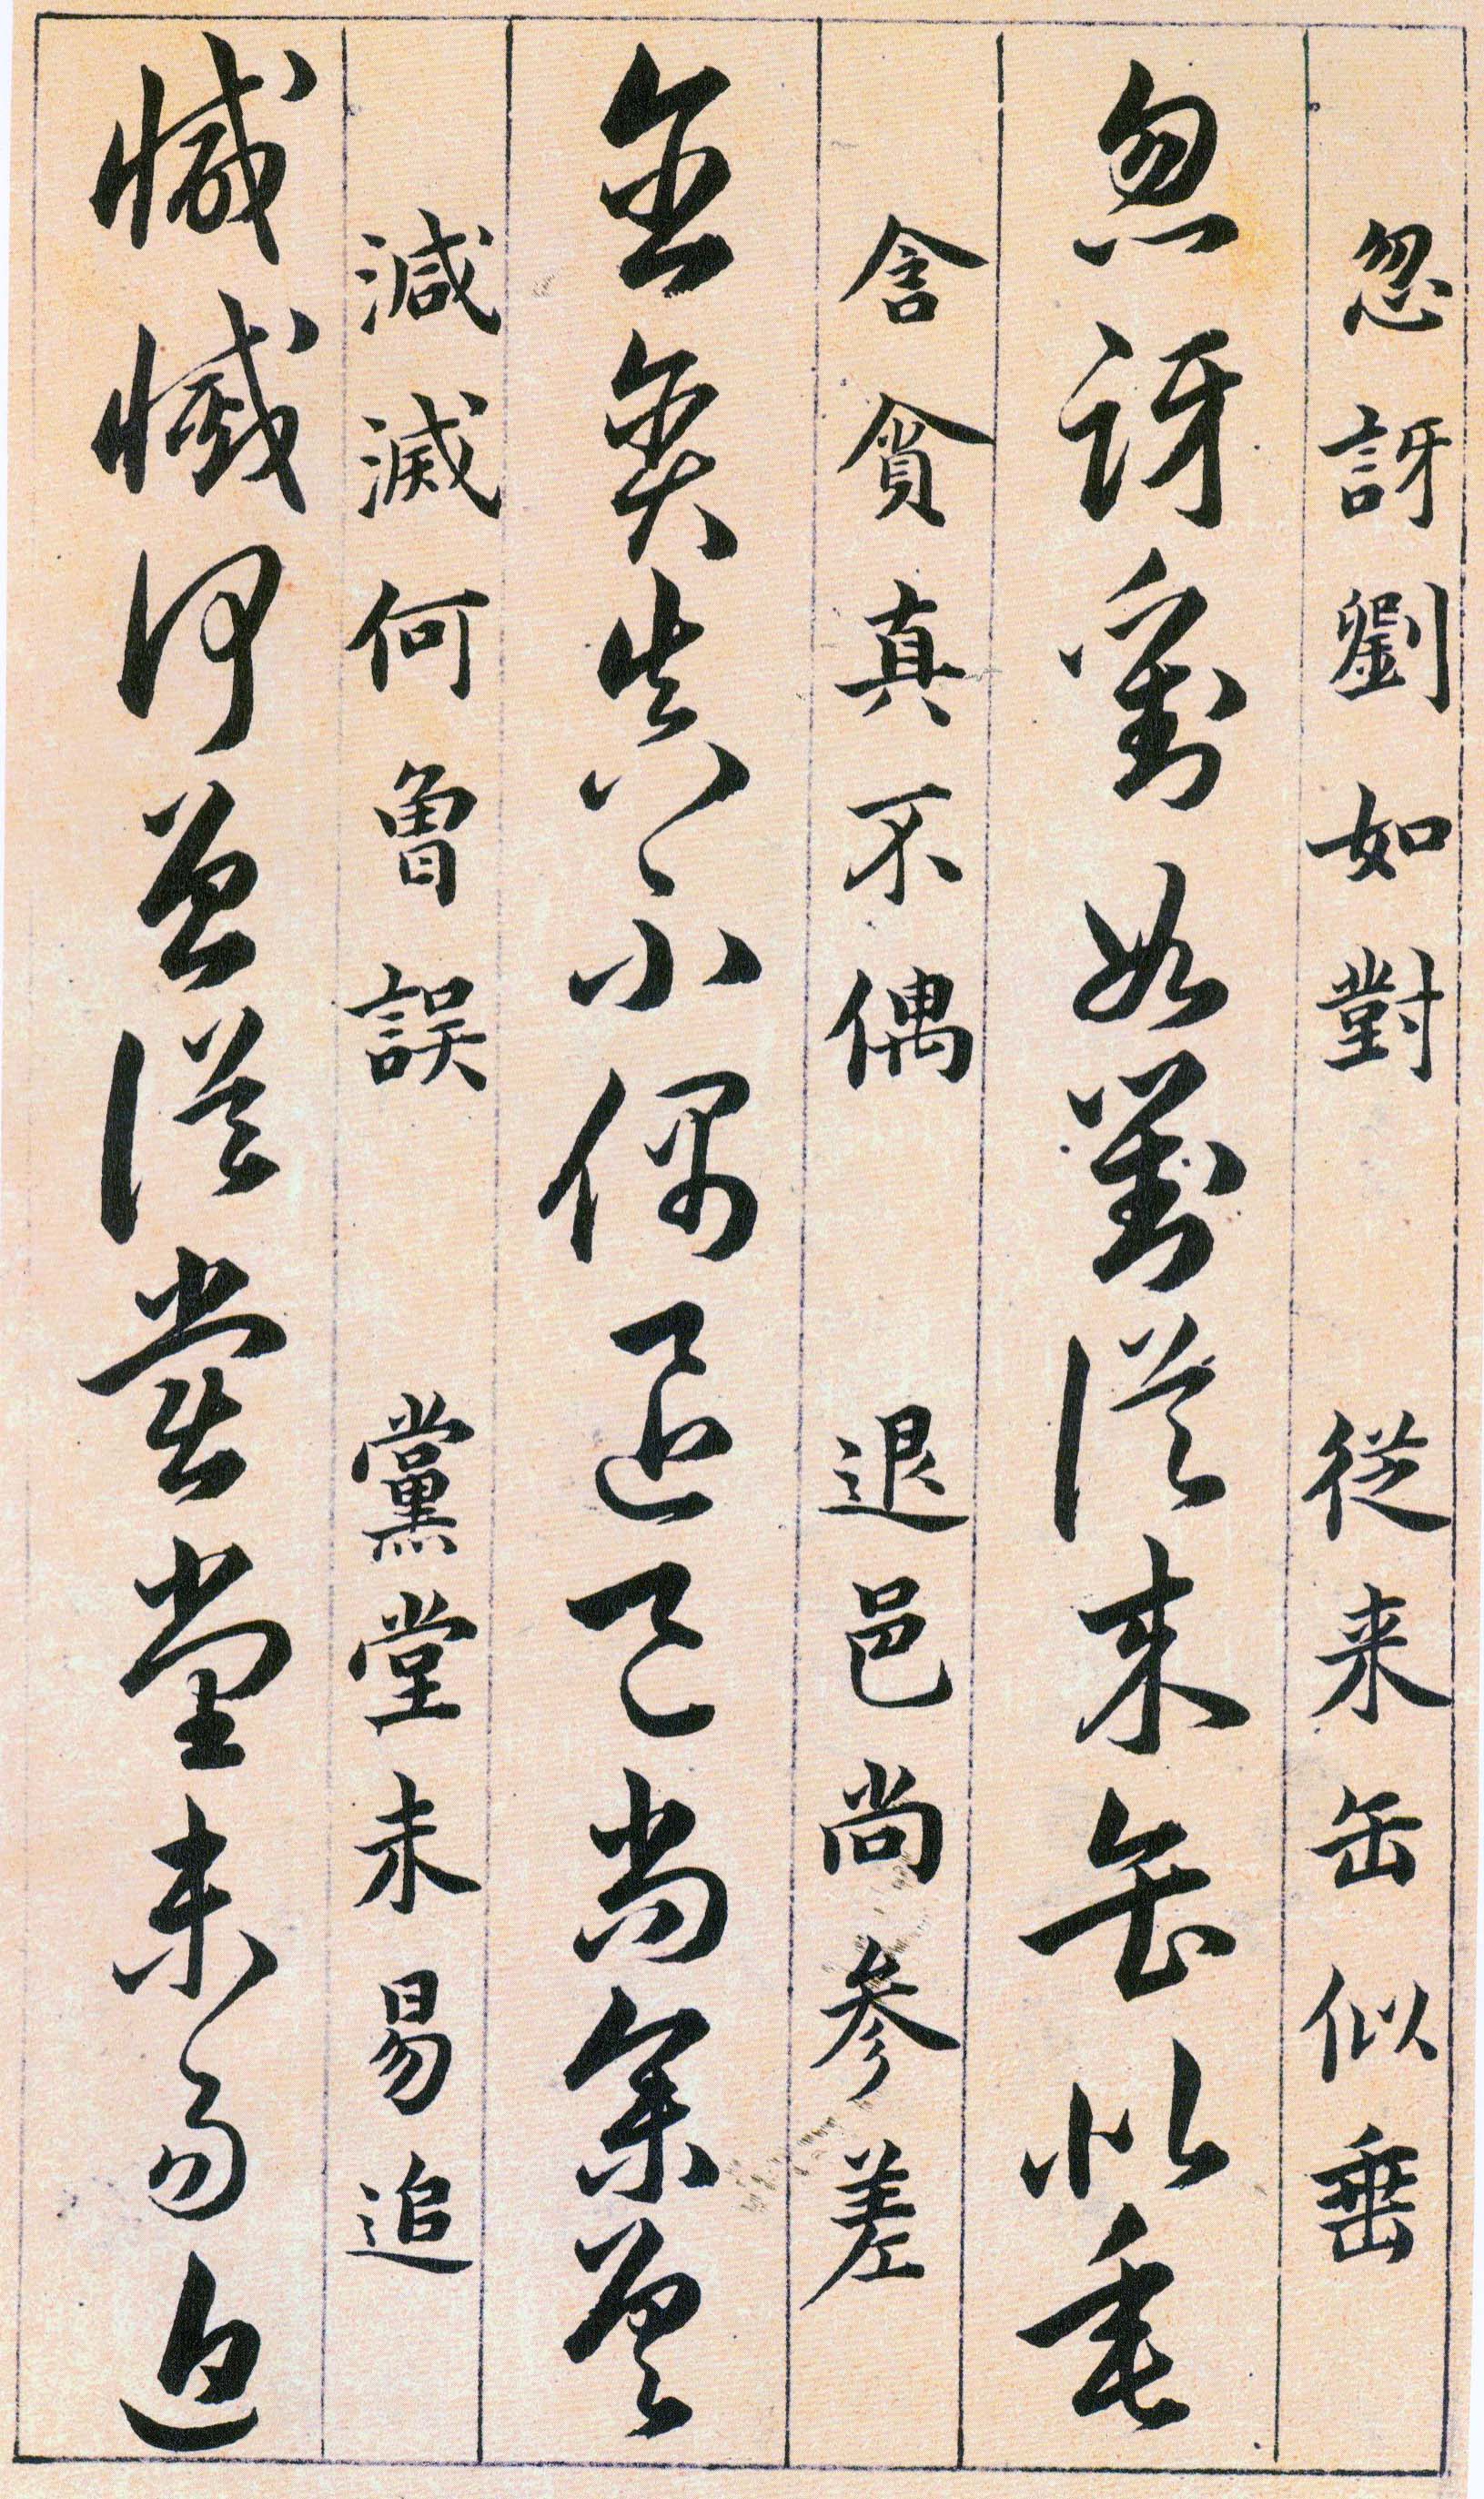 忽訝劉如對 従来缶似垂
忽訝劉如對従来缶似垂
含貪真不偶 退邑尚参差
含貪真不偶退邑尚参差
減滅何曾誤 黨堂未易追
減滅何曾誤黨堂未易追